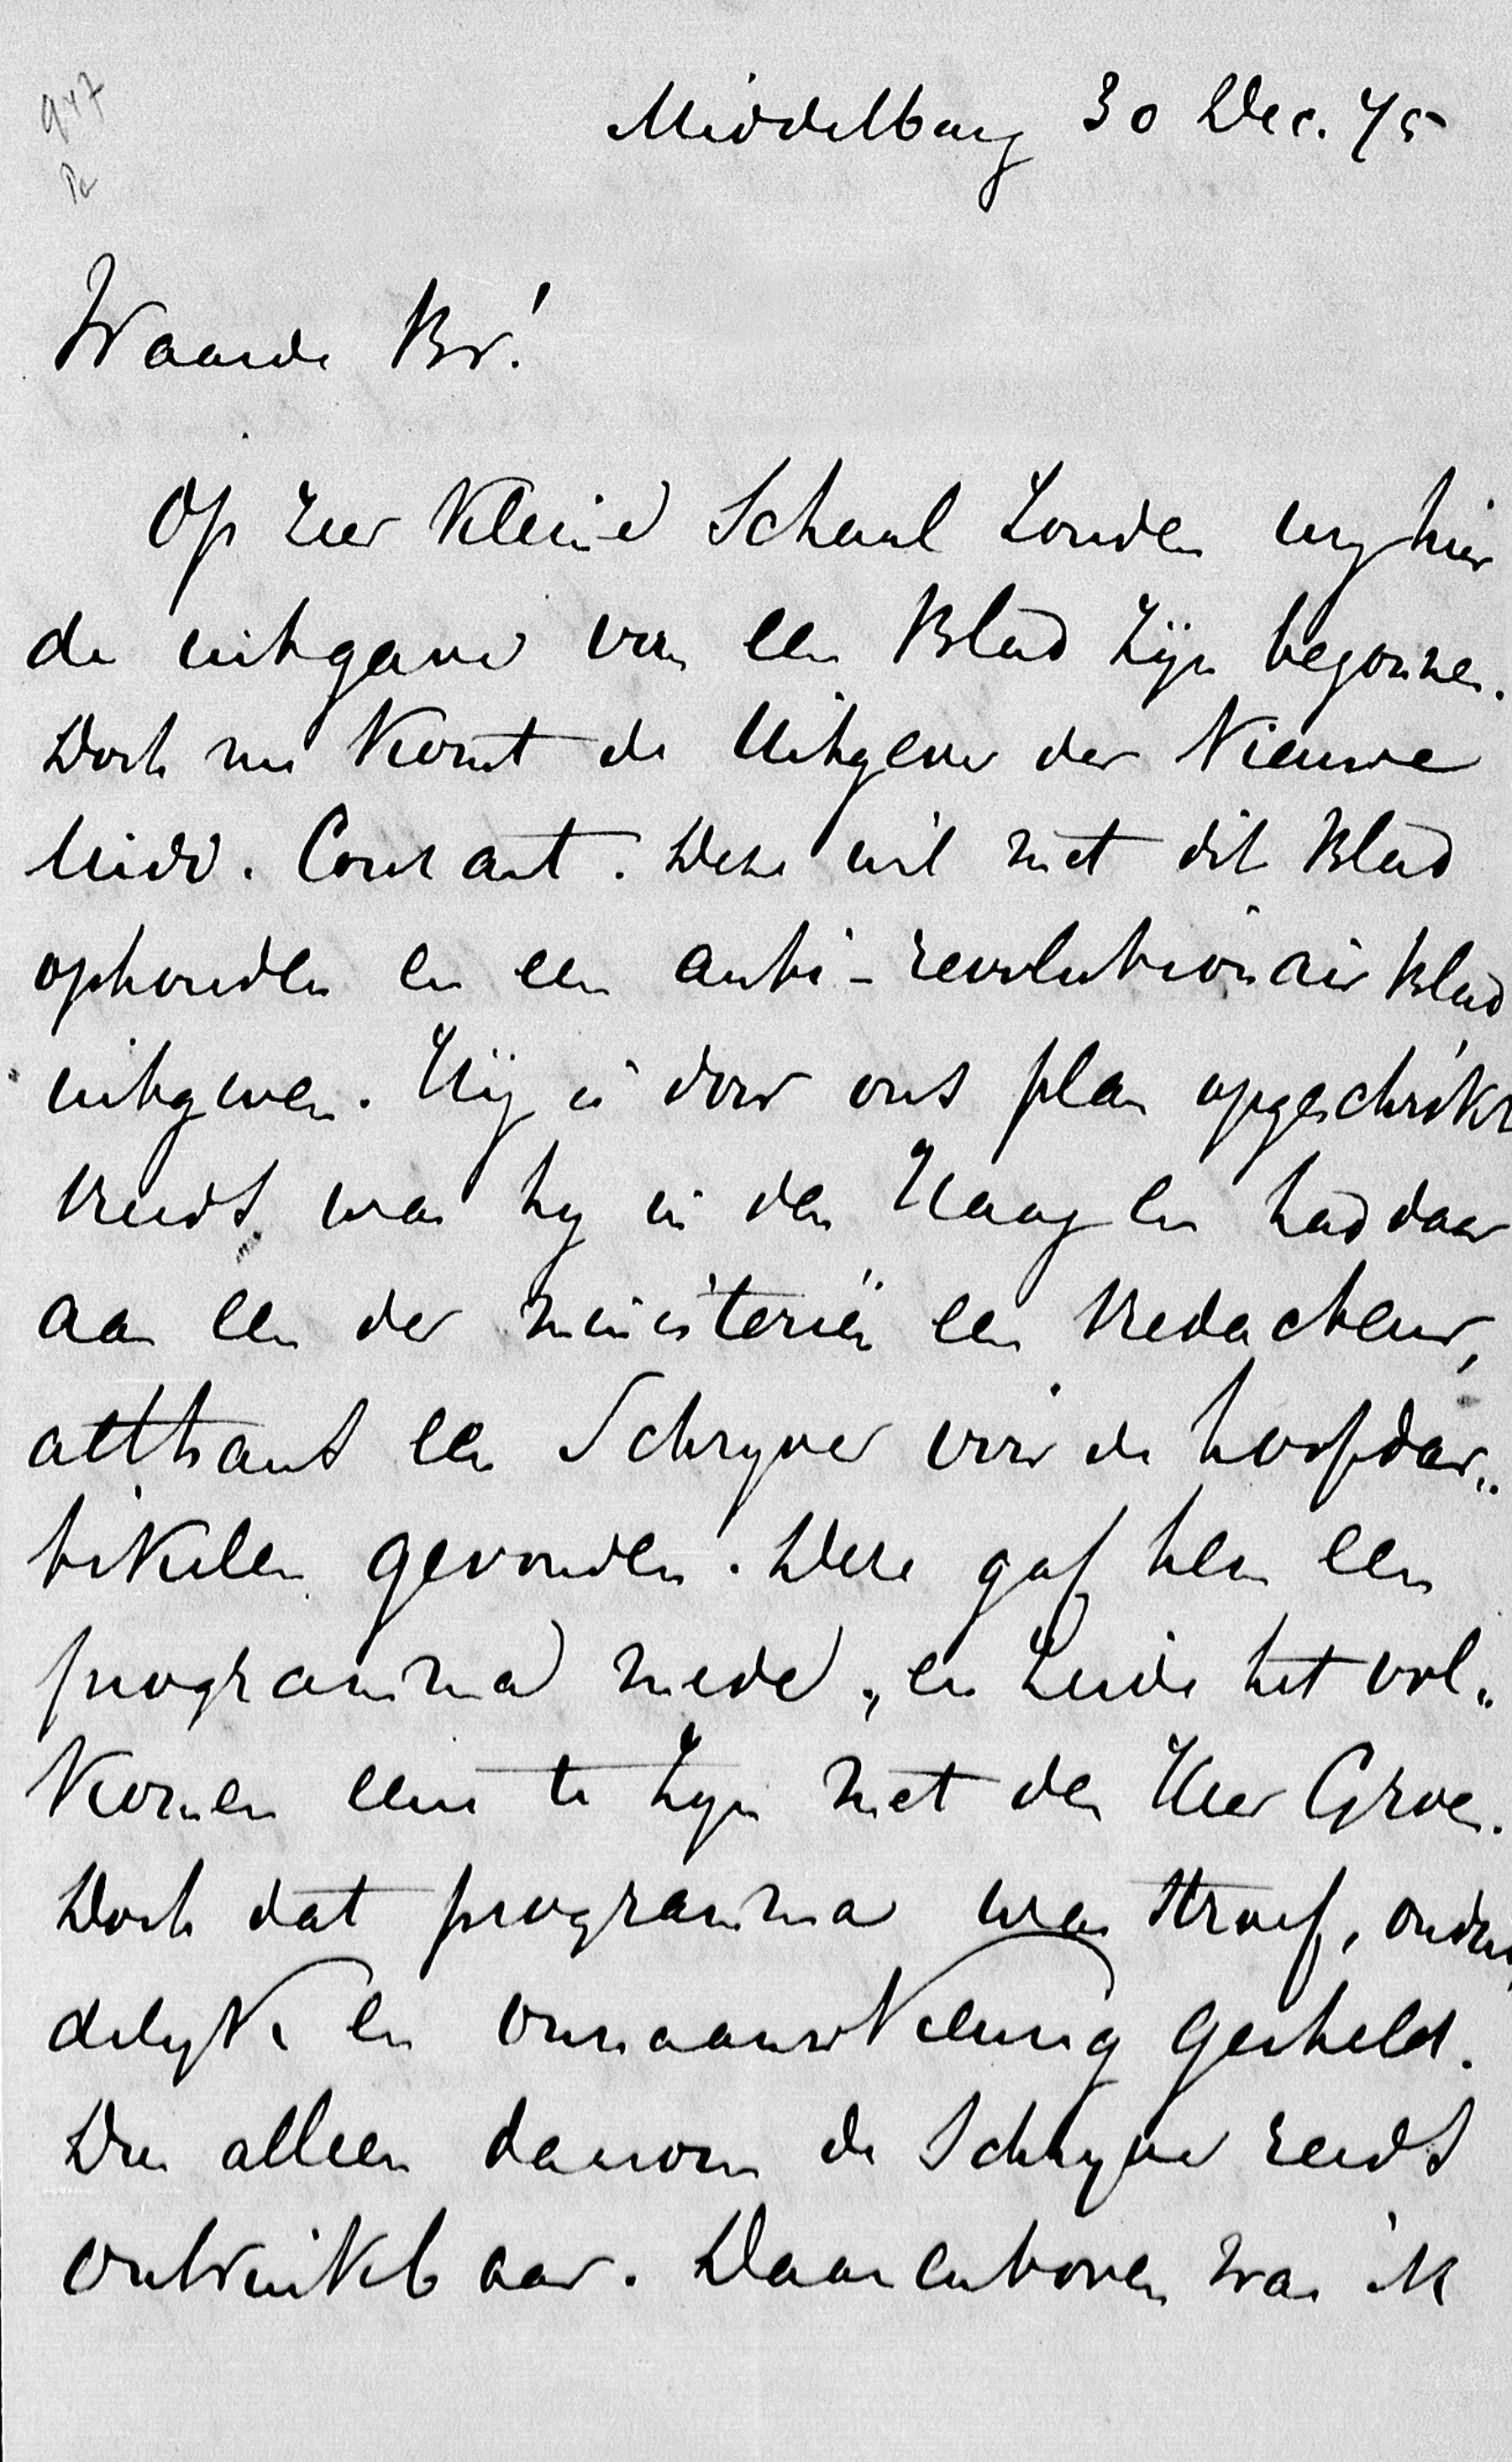 947
Pa
Middelburg 30 Dec. 75
Waarde Br!
Op zeer kleine Schaal zouden wy hier
de uitgave van een Blad zijn begonnen.
Doch nu komt de Uitgever der Nieuwe
Midd. Courant. Deze wil met dit Blad
ophouden en een anti-revolutionair Blad
uitgeven. Hij is door ons plan opgeschrikt
Reeds was hy in den Haag en had daar
aan een der ministeriën een Redacteur,
althans een Schryver voor de hoofdar„
tikelen gevonden. Deze gaf hem een
programma mede, en zeide het vol„
komen eens te zyn met den Heer Groen.
Doch dat programma was stroef, ondui
delyk en onnaauwkeurig gesteld.
Dus alleen daarom de Schryver reeds
onbruikbaar. Daarenboven was ik